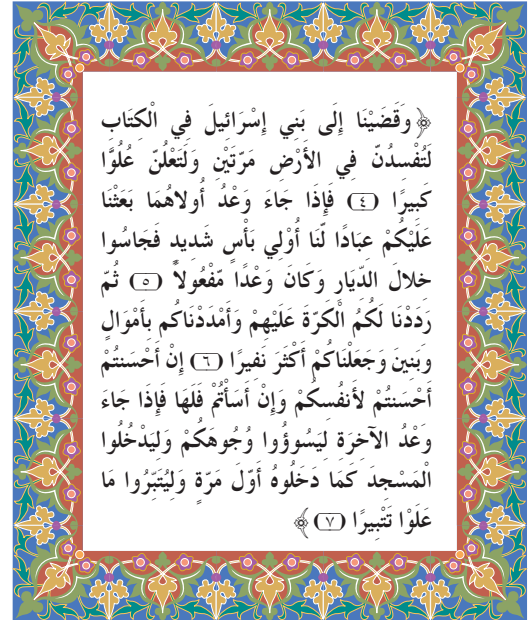 ﴿ وَقَضَيْنَا إِلَى بَنِي إِسْرَائِيلَ فِي الْكِتَابِ
لَتُفْسِدُنّ فِي الأَرْضِ مَرّتَيْنِ وَلَتَعْلُنّ عُلُوّا
كَبِيرًا (٤) فَإِذَا جَاءَ وَعْدُ أُولاهُمَا بَعَثْنَا
عَلَيْكُمْ عِبَادًا لّنَا أُوْلِي بَأْسٍ شَدِيدٍ فَجَاسُوا
خِلالَ الدّيَارِ وَكَانَ وَعْدًا مّفْعُولاً (٥) ثُمّ
رَدَدْنَا لَكُمُ الْكَرّةَ عَلَيْهِمْ وَأَمْدَدْنَاكُم بِأَمْوَالٍ
وَبَنِينَ وَجَعَلْنَاكُمْ أَكْثَرَ نَفِيرًا (٦) إِنْ أَحْسَنتُمْ
أَحْسَنتُمْ لأَنفُسِكُمْ وَإِنْ أَسَأْتُمْ فَلَهَا فَإِذَا جَاءَ
وَعْدُ الآخِرَةِ لِيَسُوؤُوا وُجُوهَكُمْ وَلِيَدْخُلُوا
الْمَسْجِدَ كَمَا دَخَلُوهُ أَوّلَ مَرّةٍ وَلِيُتَبّرُوا مَا
عَلَوْا تَتْبِيرًا (٧) ﴾